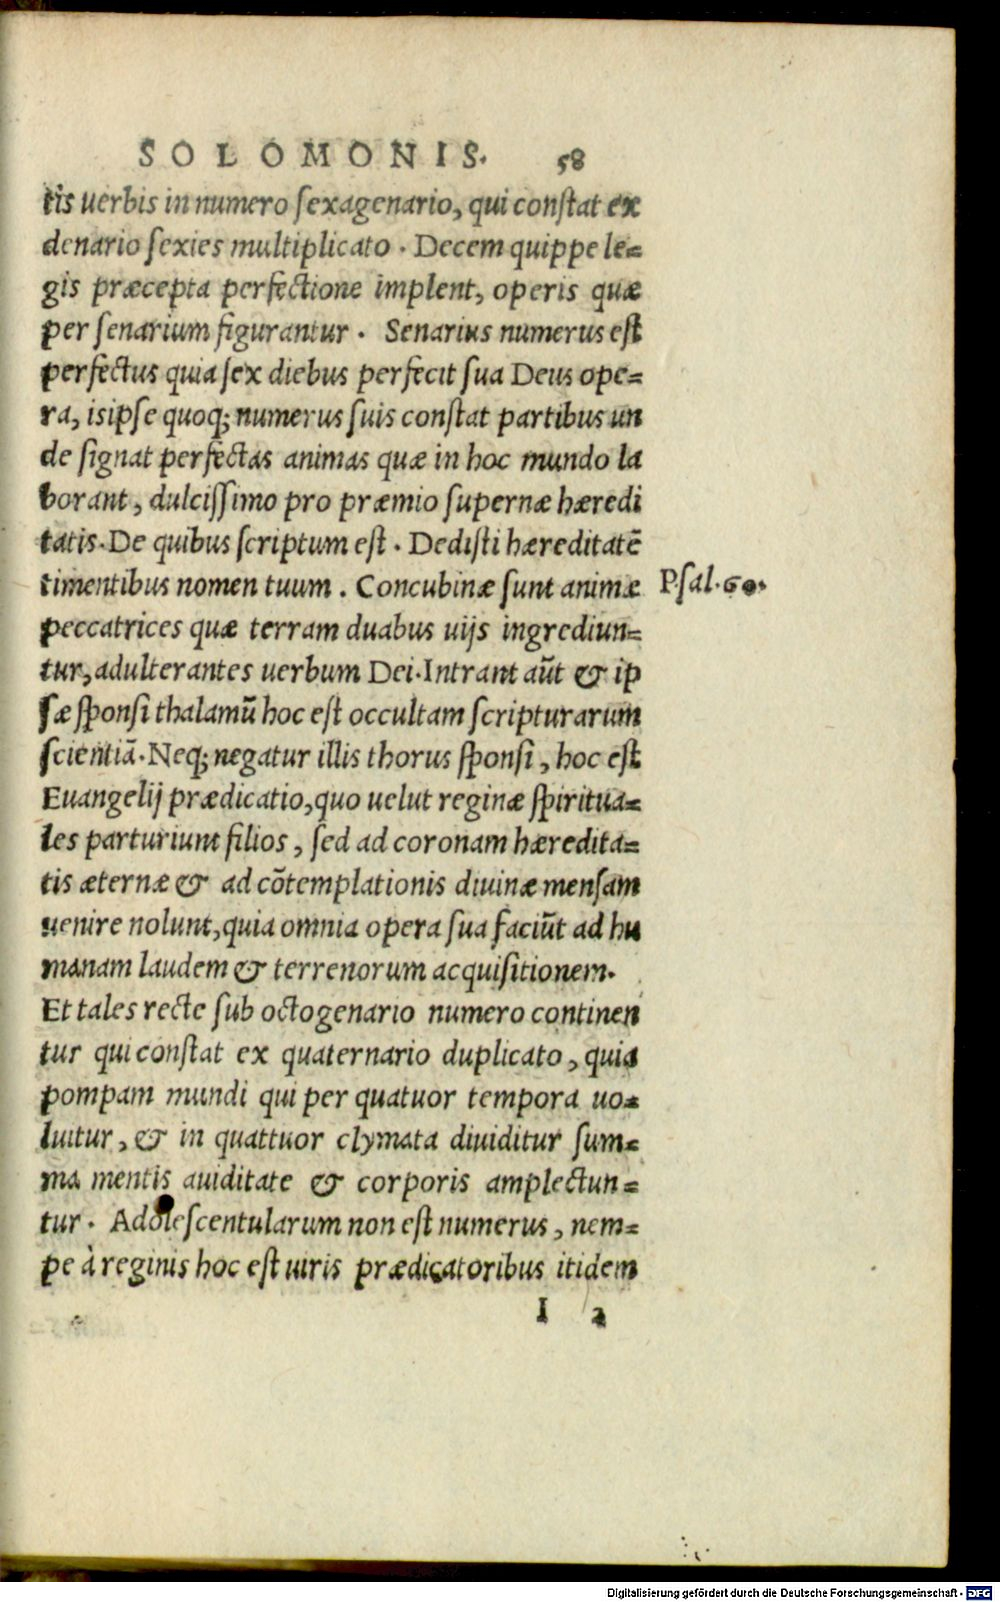 SOLOMONIS. 58
tis uerbis in numero sexagenario, qui constat ex
denario sexies multiplicato. Decem quippe le=
gis præcepta perfectione implent, operis quæ
per senarium figurantur. Senarius numerus est
perfectus quia sex diebus perfecit sua Deus ope=
ra, is ipse quoq; numerus suis constat partibus un
de signat perfectas animas quæ in hoc mundo la
borant, dulcissimo pro præmio supernæ hæredi
tatis. De quibus scriptum est. Dedisti hæreditatē
timentibus nomen tuum. Concubinæ sunt animæ
Psal. 60.
peccatrices quæ terram duabus uijs ingrediun=
tur, adulterantes uerbum Dei. Intrant aūt & ip
sæ sponsi thalamū hoc est occultam scripturarum
scientiā. Neq; negatur illis thorus sponsi, hoc est
Euangelij prædicatio, quo uelut reginæ spiritua=
les parturiunt filios, sed ad coronam hæredita=
tis æternæ & ad cōtemplationis diuinæ mensam
uenire nolunt, quia omnia opera sua faciūt ad hu
manam laudem & terrenorum acquisitionem.
Et tales recte sub octogenario numero continen
tur qui constat ex quaternario duplicato, quia
pompam mundi qui per quatuor tempora uo=
luitur, & in quattuor clymata diuiditur sum=
ma mentis auiditate & corporis amplectun=
tur. Adolescentularum non est numerus, nem=
pe à reginis hoc est uiris prædicatoribus itidem
I 2
Digitalisierung gefördert durch die Deutsche Forschungsgemeinschaft - DFG